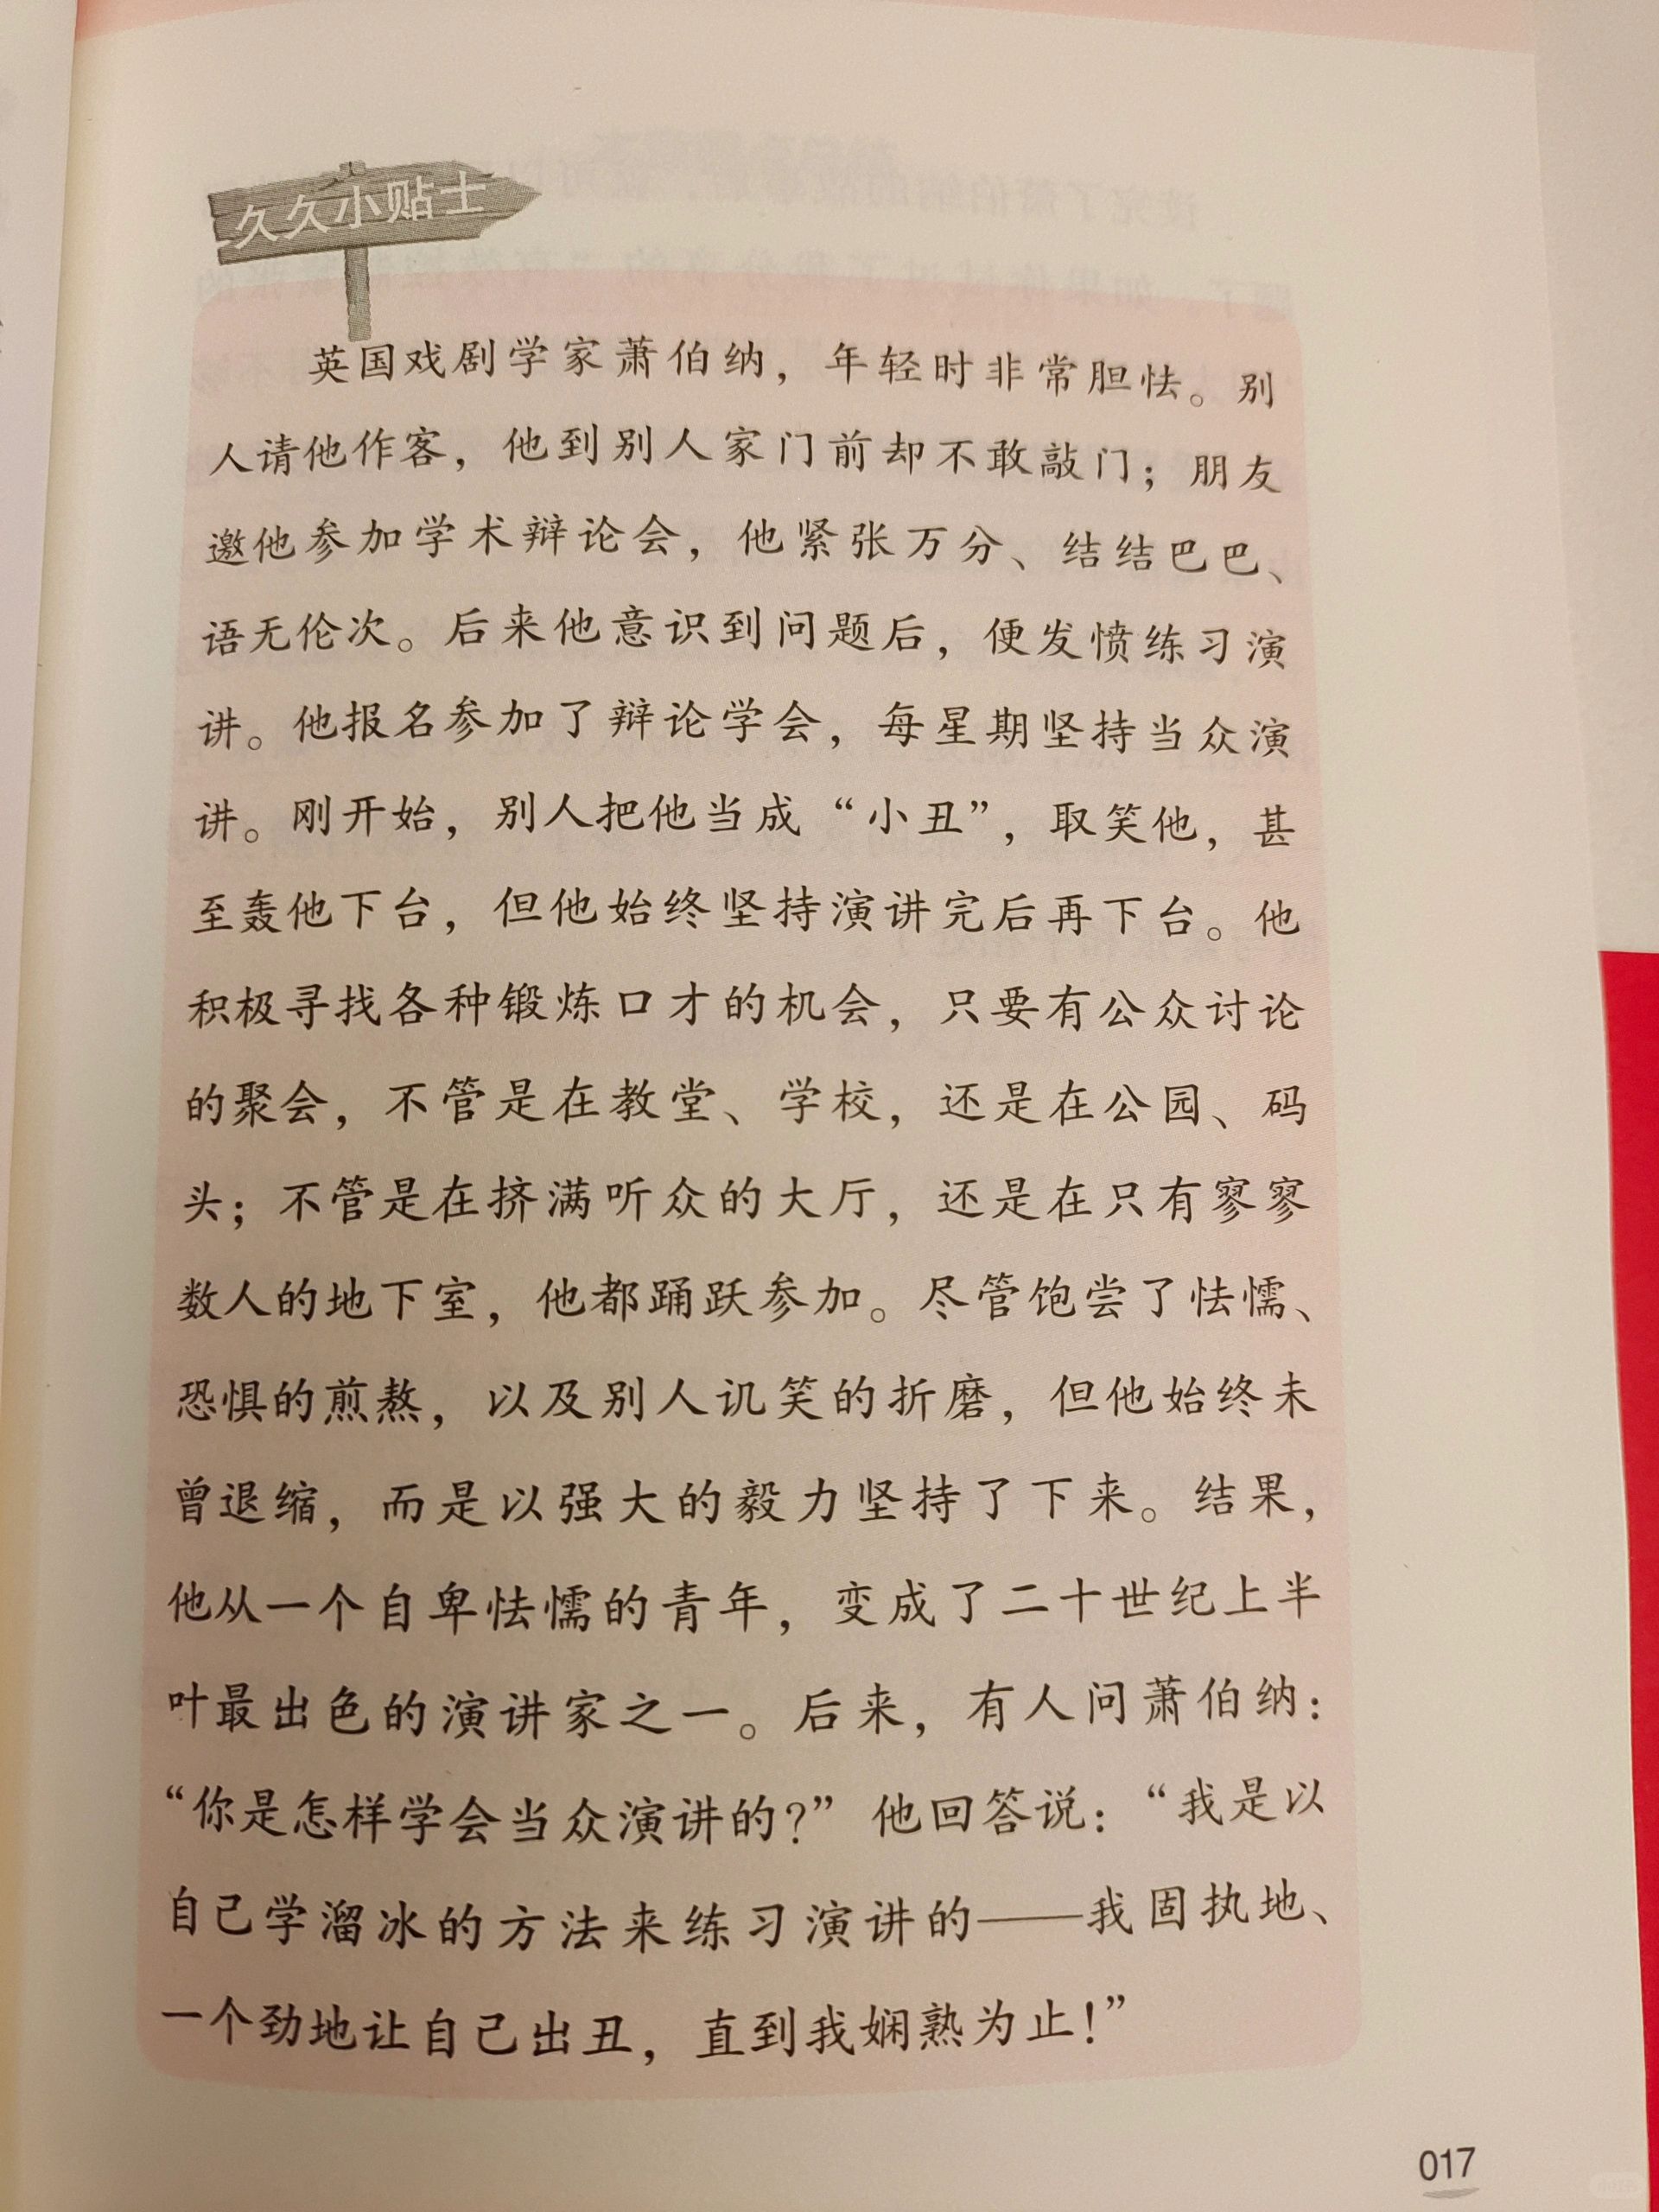 久久小贴士
英国戏剧学家萧伯纳，年轻时非常胆怯。别
人请他作客，他到别人家门前却不敢敲门；朋友
邀他参加学术辩论会，他紧张万分、结结巴巴、
语无伦次。后来他意识到问题后，便发愤练习演
讲。他报名参加了辩论学会，每星期坚持当众演
讲。刚开始，别人把他当成“小丑”，取笑他，甚
至轰他下台，但他始终坚持演讲完后再下台。他
积极寻找各种锻炼口才的机会，只要有公众讨论
的聚会，不管是在教堂、学校，还是在公园、码
头；不管是在挤满听众的大厅，还是在只有寥寥
数人的地下室，他都踊跃参加。尽管饱尝了怯懦、
恐惧的煎熬，以及别人讥笑的折磨，但他始终未
曾退缩，而是以强大的毅力坚持了下来。结果，
他从一个自卑怯懦的青年，变成了二十世纪上半
叶最出色的演讲家之一。后来，有人问萧伯纳：
“你是怎样学会当众演讲的？”他回答说：“我是以
自己学溜冰的方法来练习演讲的——我固执地、
一个劲地让自己出丑，直到我娴熟为止！”
017